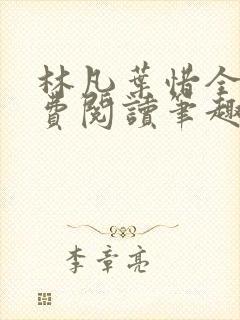 林凡葉惜全
費閱讀筆趣
李章亮